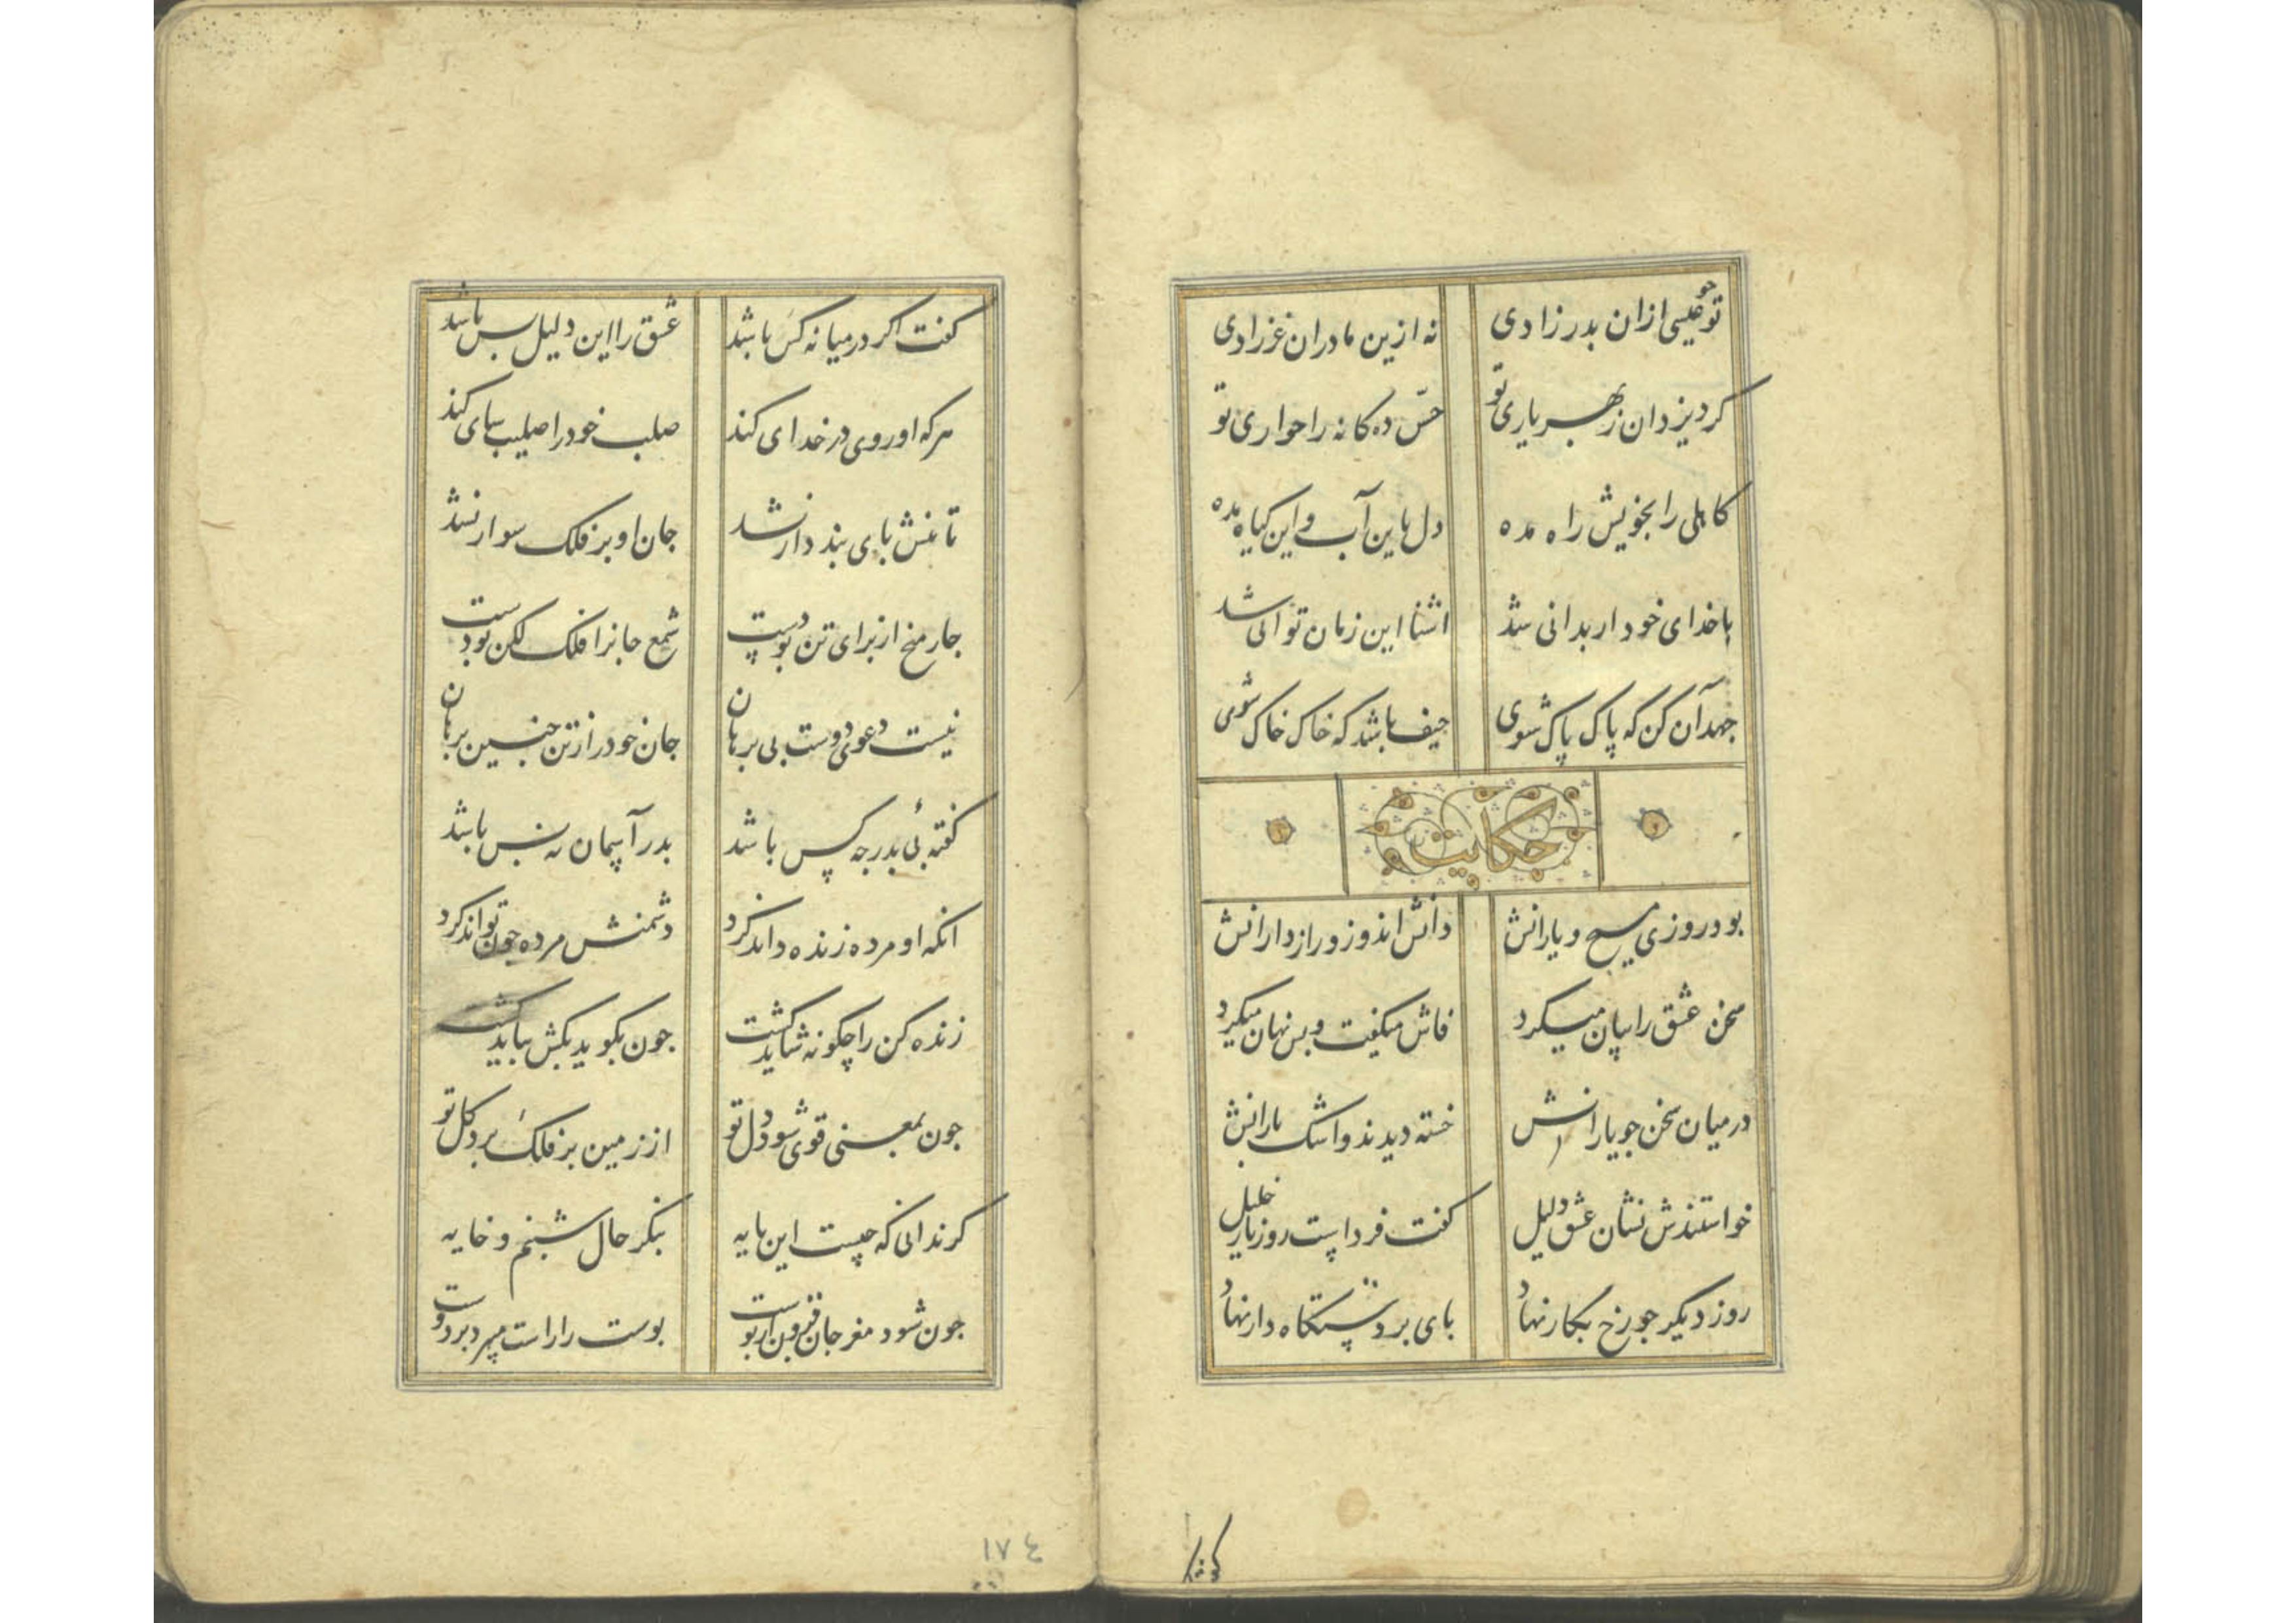 تو چو عیسی ازان بدر زادی نه ازین مادران غر زادی
کرد یزدان ز بهر یاری تو حس ده کانه را حواری تو
کاهلی را بخویش راه مده دل باین آب و این کیاه مده
با خدای خود ار بدانی شد اشنا این زمان توانی شد
جهد آن کن که پاک پاک شوی حیف باشد که خاک خاک شوی
حکایت
بود روزی مسیح و یارانش دانش اندوز و رازدارانش
سخن عشق را بیان میکرد فاش میکفت و بس نهان میکرد
در میان سخن جو یارانش خسته دیدند و اشک بارانش
خواستندش نشان عشق و دلیل کفت فرداست روز بار خلیل
روز دیکر جو رخ بکار نهاد بای بر دستکاه دار نهاد
کفت اکر در میانه کس باشد عشق را این دلیل بس باشد
هرکه او روی در خدای کند صلب خود را صلیب سای کند
تا تنش بای بند دار نشد جان او بر فلک سوار نشد
جار میخ از برای تن بودست شمع جانرا فلک لکن بودست
نیست دعوی دوست بی برهان جان خود را ز تن جنین برهان
کفته ئی بدر جه کس باشد بدر آسمان نه بس باشد
انکه او مرده زنده داند کرد دشمنش مرده جون تواند کرد
زنده کن را چکونه شاید کشت جون بکوید بکش بباید کشت
جون بمعنی قوی شود دل تو از زمین بر فلک برد کل تو
کر ندانی که جیست این مایه بنکر حال شبنم و خایه
جون شود مغز جان قرین اوبوست بوست را راست میبرد بر دوست
کفت
١٧٤